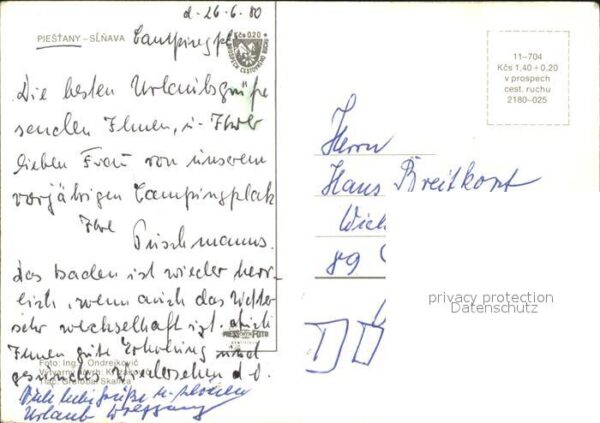 d. 26.6.80
PIEŠŤANY – SĹŇAVA
Campingpl.
Kčs 0,20 +
Die besten Urlaubsgrüße
senden Ihnen, u. Ihrer
lieben Frau von unserem
vorjährigen Campingplatz
Ihre
Tuschmanns.
das Baden ist wieder herr-
lich, wenn auch das Wetter
sehr wechselhaft ist. auch
Ihnen gute Erholung und
gesundes Wiedersehen d. O.
Viele liebe Grüße u. schönen
Urlaub Wolfgang
PRESS FOTO
Foto: Ing. J. Ondrejkovič
Tlač: Grafobal Skalica
11–704
Kčs 1,40 + 0,20
v prospech
cest. ruchu
2180–025
Herrn
Hans Breitkopf
89
privacy protection
Datenschutz